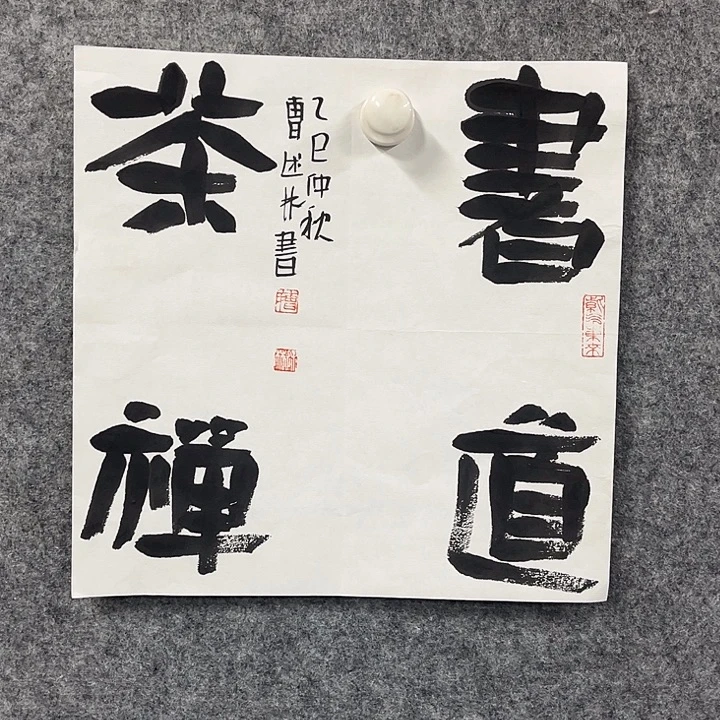 書道
茶禪
乙巳仲秋
曹述林書